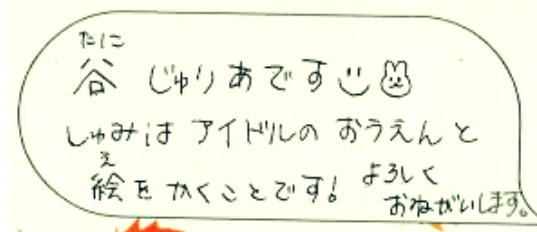 たに
谷 じゅりあです
しゅみは アイドルの おうえんと
え
絵を かくことです! よろしく
おねがいします。